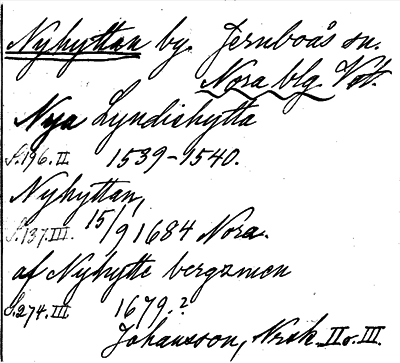 Nyhyttan by. Järnboås sn.
Nora blg Vstm.
Nya Lyndishytta
S. 196. II 1539-1540.
Nyhyttan,
S. 137. III. 15/9 1684 Nora.
af Nyhytte bergzmen
S. 274. III 1679.?
Johansson, Nrsk. II o. III.